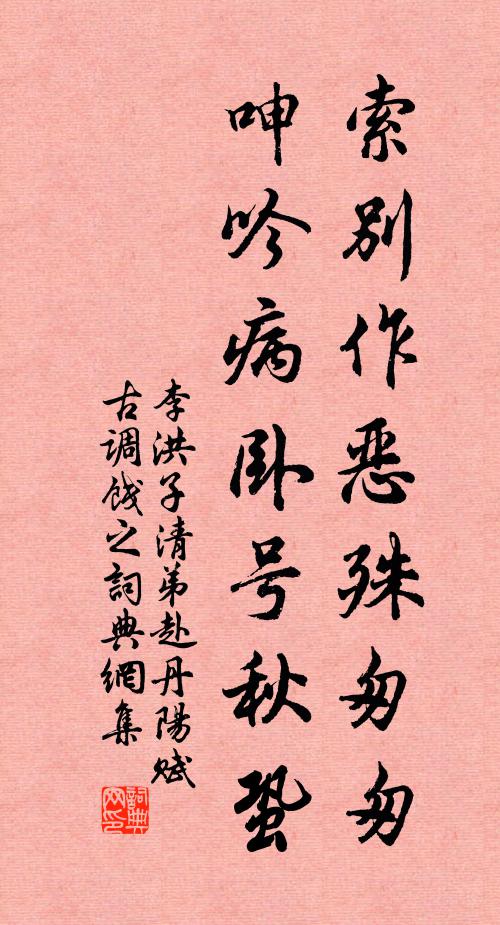 索别作恶殊匆匆
呻吟病卧号秋蛩
李洪子清弟赴丹陽赋
古调饯之詞典網集
詞典網印